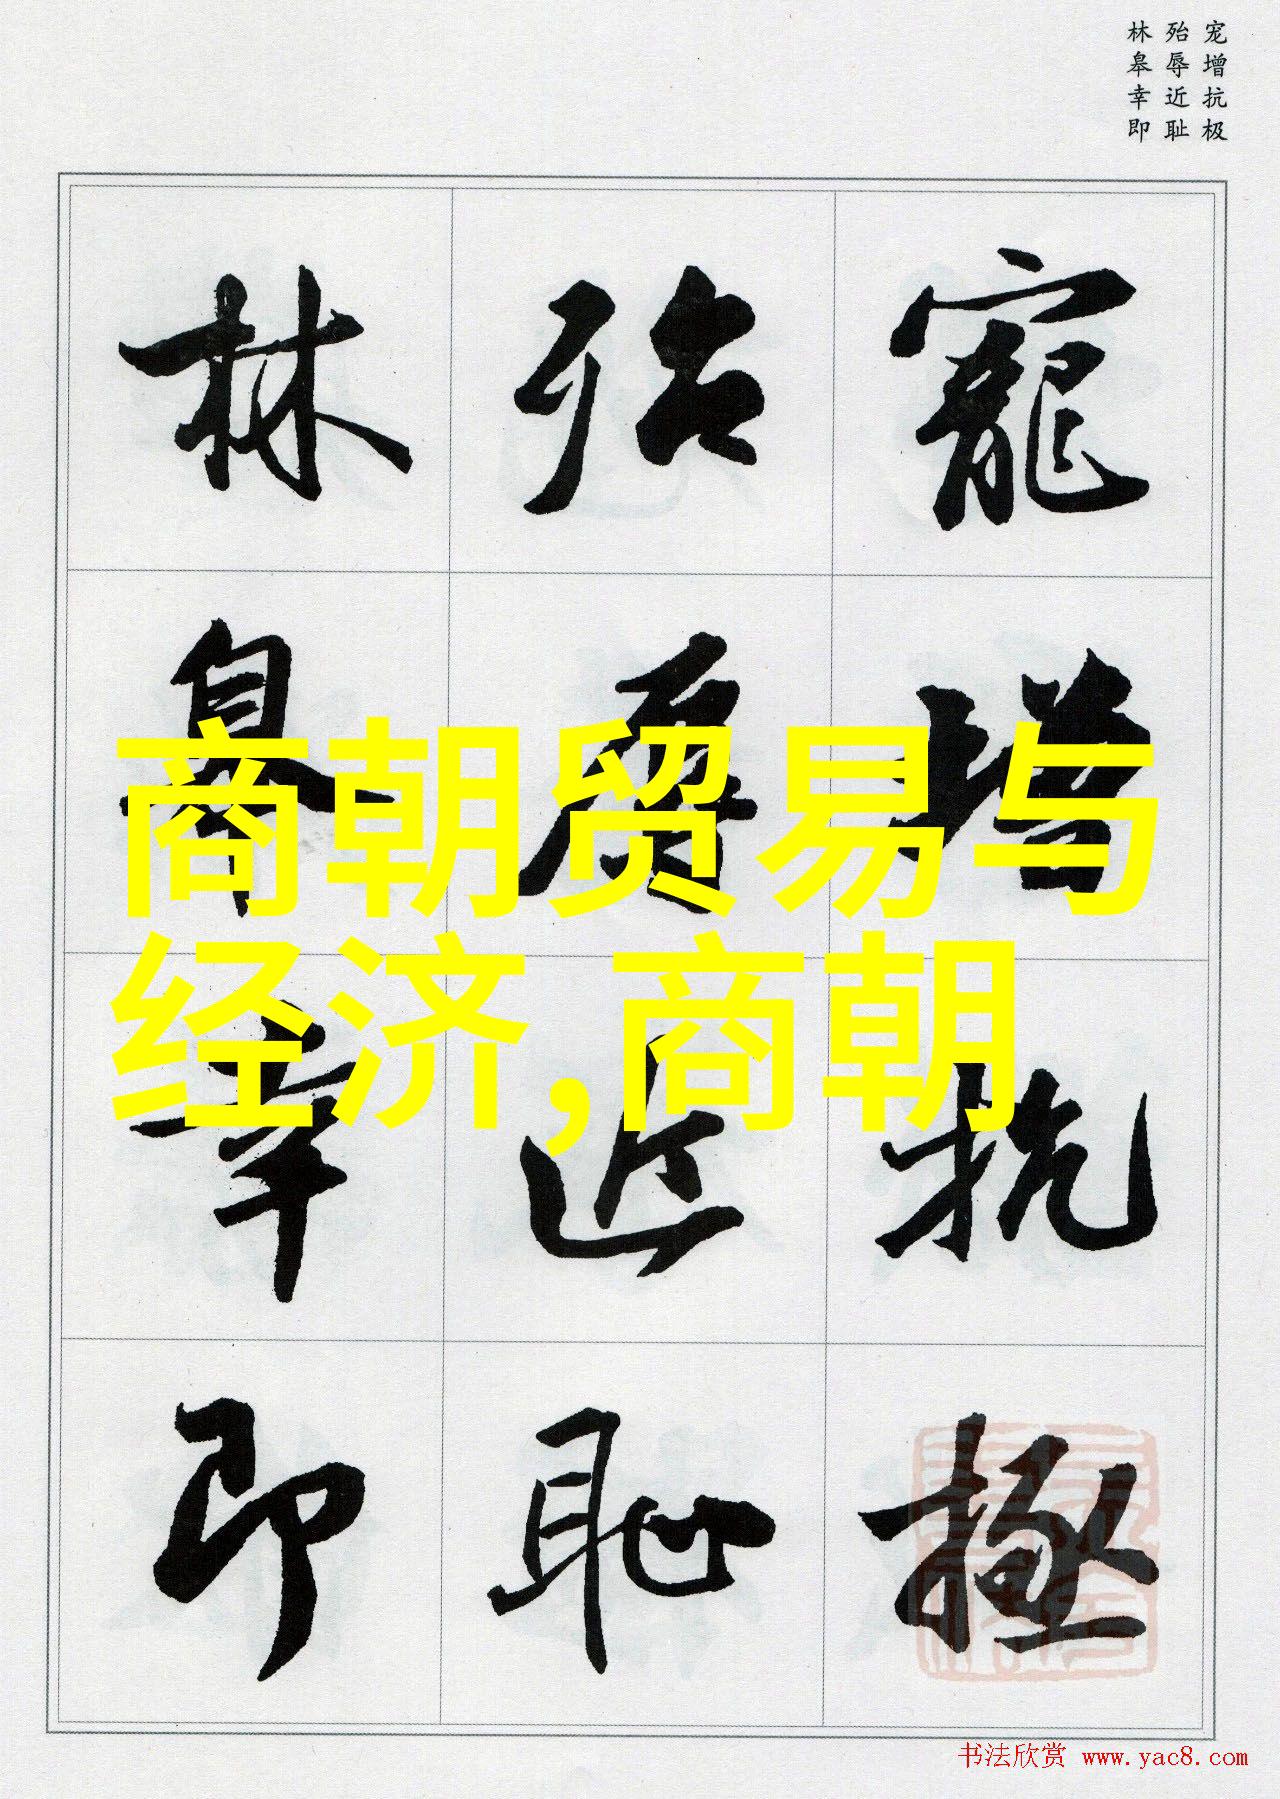 宠增抗极
殆辱近耻
林皋幸即
寵增抗極
殆辱近恥
林皋幸即
商朝贸易与
经济,商朝
书法欣赏 www.yac8.com